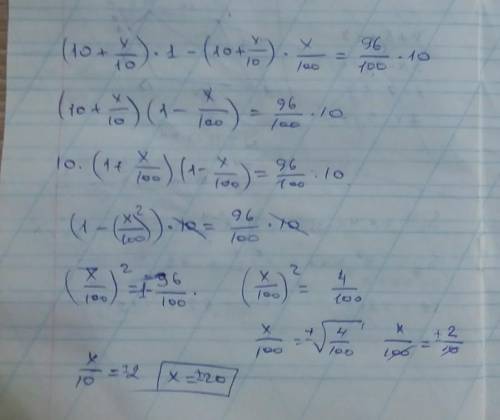 (10 + x/10) · 1 - (10 + x/10) · x/100 = 96/100 · 10
(10 + x/10) (1 - x/100) = 96/100 · 10
10 · (1 + x/100) (1 - x/100) = 96/100 · 10
(1 - (x²/100)) · 10 = 96/100 · 10
(x/100)² = 1 - 96/100 · (x/100)² = 4/100
x/100 = ±√(4/100) x/100 = ±2/10
x/10 = ±2 x = ±20